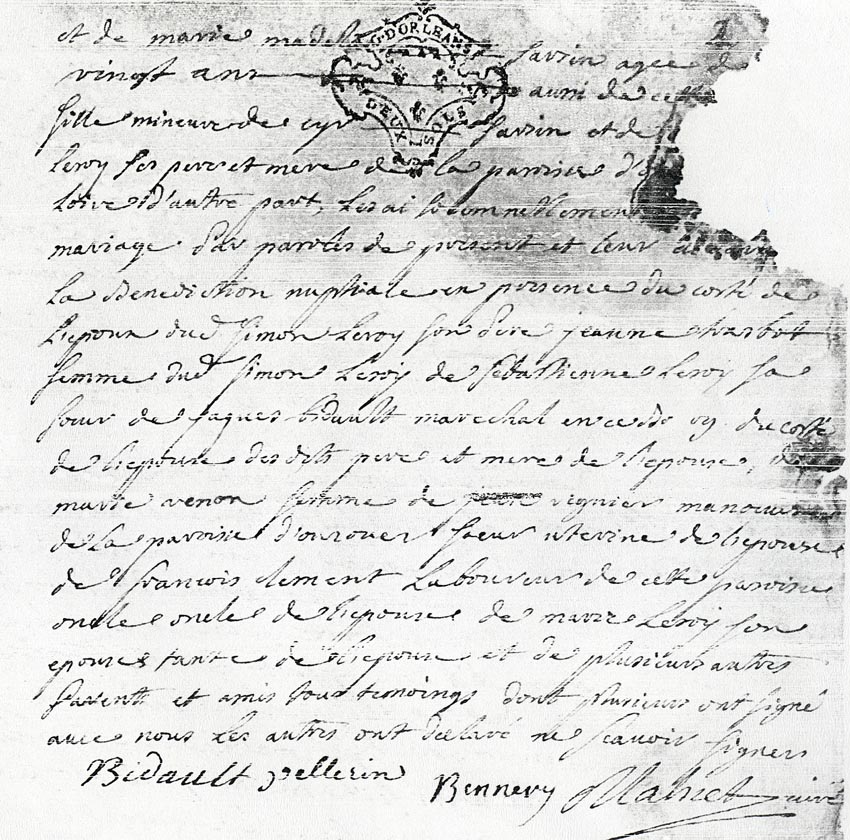 et de marie madel
G. D'ORLEANS
DEUX SOLS
Savin agee de
vingt ans aussi de cette
fille mineure de cyr Savin et de
Leroy ses pere et mere de la paroisse d'
Loire d'autre part, Les ai solemnellement
mariage par paroles de present et leur ai
La Benediction nuptiale en presence du costé de
L'epoux dud simon Leroy son pere jeanne
femme dud simon Leroy de sebastienne Leroy sa
soeur de jaques bidault marechal en ce du costé
de l'epouse des dits pere et mere de l'epouse, de
marie venon femme de vignier manouvrier
de La paroisse d'ourouer soeur uterine de l'epouse
de francois clement Laboureur de cette paroisse
oncle oncle de l'epouse de marie Leroy son
epouse tante de l'epoux et de plusieurs autres
parents et amis tous temoings dont plusieurs ont signé
avec nous Les autres ont declaré ne scavoir signer
Bidault pellerin Bennery Mahiet curé